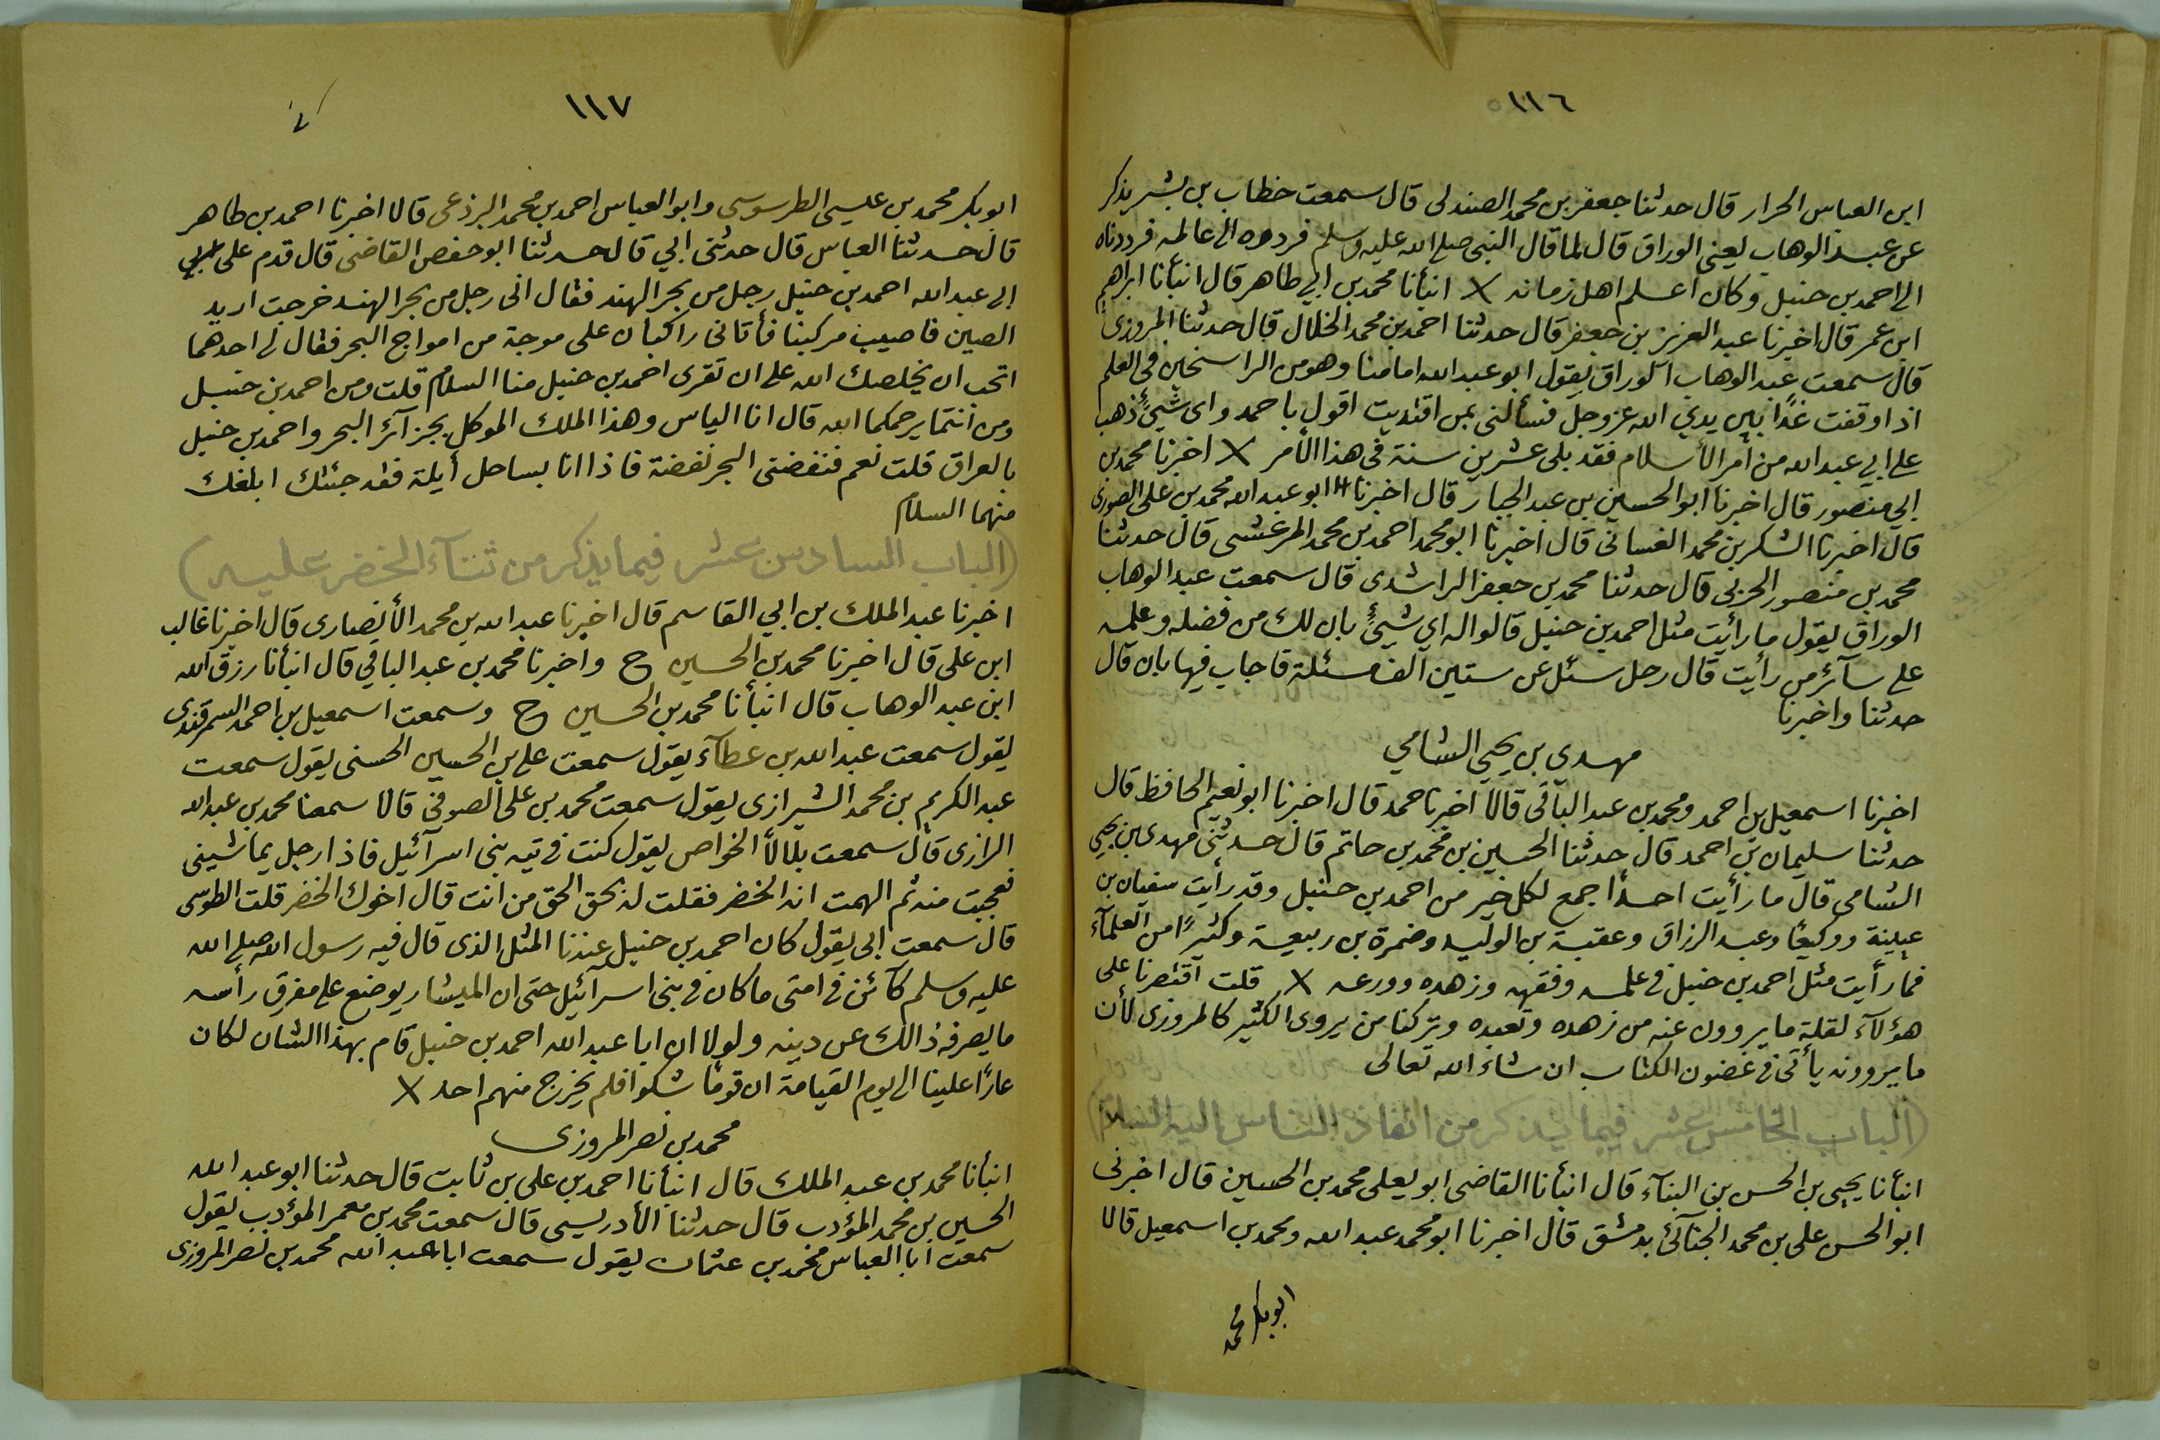 ١١٦
ابن العباس الحرار قال حدثنا جعفر بن محمد الصندلى قال سمعت خطاب بن بشر يذكر
عن عبد الوهاب يعنى الوراق قال لما قال النبى صلى الله عليه وسلم فردوه الى عالمه فرددناه
الى احمد بن حنبل وكان اعلم اهل زمانه X انبأنا محمد بن ابي طاهر قال انبأنا ابراهيم
ابن عمر قال اخبرنا عبد العزيز بن جعفر قال حدثنا احمد بن محمد الخلال قال حدثنا المروزى
قال سمعت عبد الوهاب الوراق يقول ابو عبد الله امامنا وهو من الراسخين فى العلم
اذا وقفت غدًا بين يدي الله عز وجل فسألنى بمن اقتديت اقول باحمد واى شيئ ذهب
على ابي عبد الله من امر الأسلام فقد بلى عشرين سنة فى هذا الأمر X اخبرنا محمد بن
ابي منصور قال اخبرنا ابو الحسين بن عبد الجبار قال اخبرنا ابو عبد الله محمد بن على الصورى
قال اخبرنا الشكر بن محمد الغسانى قال اخبرنا ابو محمد احمد بن محمد المرعشى قال حدثنا
محمد بن منصور الحربى قال حدثنا محمد بن جعفر الراشدى قال سمعت عبد الوهاب
الوراق يقول ما رأيت مثل احمد بن حنبل قالوا له اي شيئ بان لك من فضله وعلمه
على سآئر من رأيت قال رجل سئل عن ستين الف مسئلة فاجاب فيها بان قال
حدثنا واخبرنا
مهدي بن يحيى الشامي
اخبرنا اسمعيل بن احمد ومحمد بن عبد الباقى قالا اخبرنا حمد قال اخبرنا ابو نعيم الحافظ قال
حدثنا سليمان بن احمد قال حدثنا الحسين بن محمد بن حاتم قال حدثنى مهدى بن يحيى
الشامى قال ما رأيت احدًا اجمع لكل خير من احمد بن حنبل وقد رأيت سفيان بن
عيينة ووكيعًا وعبد الرزاق وعقبة بن الوليد وضمرة بن ربيعة وكثيرًا من العلمآء
فما رأيت مثل احمد بن حنبل فى علمه وفقهه وزهده وورعه X قلت اقتصرنا على
هؤلآء لقلة ما يروون عنه من زهده وتعبده وتركنا من يروى الكثير كالمروزى لأن
ما يروونه يأتى فى غضون الكتاب ان شاء الله تعالى
(الباب الخامس عشر فيما يذكر من انفاذ الياس اليه السلام)
انبأنا يحيى بن الحسن بن البنآء قال انبأنا القاضى ابو يعلى محمد بن الحسين قال اخبرنى
ابو الحسن على بن محمد الجنآئى بدمشق قال اخبرنا ابو محمد عبد الله ومحمد بن اسمعيل قالا
ابو بكر محمد
١١٧
ابو بكر محمد بن عيسى الطرسوسى وابو العباس احمد بن محمد البرذعى قالا اخبرنا احمد بن طاهر
قال حدثنا العباس قال حدثنى ابي قال حدثنا ابو حفص القاضى قال قدم على
الى عبد الله احمد بن حنبل رجل من بحر الهند فقال انى رجل من بحر الهند خرجت اريد
الصين فاصيب مركبنا فأتانى راكبان على موجة من امواج البحر فقال لى احدهما
اتحب ان يخلصك الله على ان تقرى احمد بن حنبل منا السلام قلت ومن احمد بن حنبل
ومن انتما يرحمكما الله قال انا الياس وهذا الملك الموكل بجزآئر البحر واحمد بن حنبل
بالعراق قلت نعم فنفضنى البحر نفضة فاذا انا بساحل أيلة فقد جئتك ابلغك
منهما السلام
(الباب السادس عشر فيما يذكر من ثنآء الخضر عليه)
اخبرنا عبد الملك بن ابي القاسم قال اخبرنا عبد الله بن محمد الأنصارى قال اخبرنا غالب
ابن على قال اخبرنا محمد بن الحسين ح واخبرنا محمد بن عبد الباقي قال انبأنا رزق الله
ابن عبد الوهاب قال انبأنا محمد بن الحسين ح وسمعت اسمعيل بن احمد السمرقندى
يقول سمعت عبد الله بن عطآء يقول سمعت على بن الحسين الحسنى يقول سمعت
عبد الكريم بن محمد الشيرازى يقول سمعت محمد بن على الصوفى قالا سمعنا محمد بن عبد الله
الرازى قال سمعت بلالاً الخواص يقول كنت فى تيه بنى اسرآئيل فاذا رجل يماشينى
فعجبت منه ثم الهمت انه الخضر فقلت له بحق الحق من انت قال اخوك الخضر قلت الطوسى
قال سمعت ابى يقول كان احمد بن حنبل عندنا المثل الذى قال فيه رسول الله صلى الله
عليه وسلم كآئن فى امتى ما كان فى بنى اسرآئيل حتى ان الميشار يوضع على مفرق رأسه
ما يصرفه ذالك عن دينه ولولا ان ابا عبد الله احمد بن حنبل قام بهذا الشان لكان
عارًا علينا الى يوم القيامة ان قومًا شكوا فلم يخرج منهم احد X
محمد بن نصر المروزى
انبأنا محمد بن عبد الملك قال انبأنا احمد بن على بن ثابت قال حدثنا ابو عبد الله
الحسين بن محمد المؤدب قال حدثنا الأدريسى قال سمعت محمد بن معمر المؤدب يقول
سمعت ابا العباس محمد بن عثمان يقول سمعت ابا عبد الله محمد بن نصر المروزى